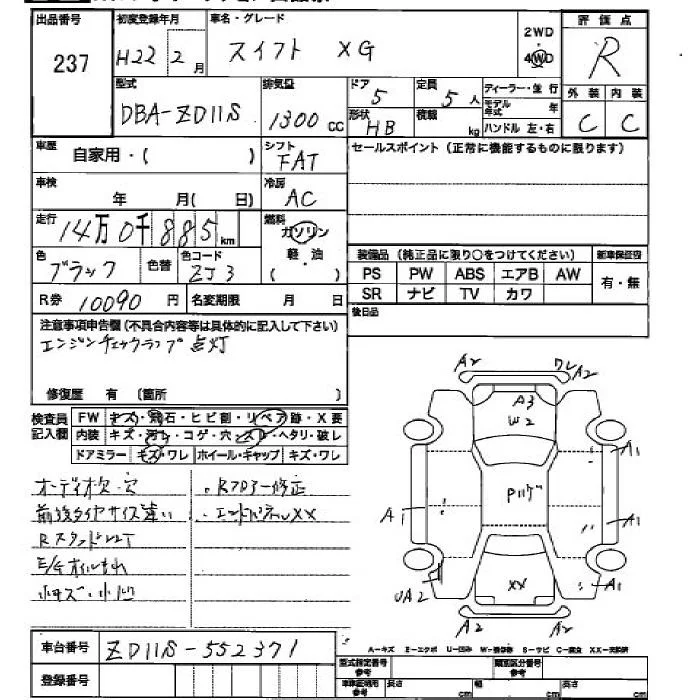 出品番号
237
初度登録年月
H22年 2月
車名・グレード
スイフト XG
2WD
4WD
評価点
R
外装 内装
C C
型式
DBA-ZD11S
排気量
1300cc
ドア
5
定員
5人
形状
HB
積載
kg
ディーラー・並行
モデル年式 年
ハンドル 左・右
車歴
自家用・( )
シフト
FAT
セールスポイント (正常に機能するものに限ります)
車検
年 月( 日)
冷房
AC
走行
14万0千885km
燃料
ガソリン
軽・油
( )
色
ブラック
色替
色コード
ZJ3
装備品 (純正品に限り○をつけてください)
新車保証書
PS PW ABS エアB AW
有・無
SR ナビ TV カワ
R券 10090円
名変期限 月 日
後日品
注意事項申告欄 (不具合内容等は具体的に記入して下さい)
エンジンチェックランプ点灯
修復歴 有 (箇所 )
検査員記入欄
FW キズ・飛石・ヒビ割・リペア跡・X要
内装 キズ・汚れ・コゲ・穴・スレ・ヘタリ・破レ
ドアミラー キズ・ワレ ホイール・キャップ キズ・ワレ
オーディオ欠・穴
前後タイヤサイズ違い
E/Gオイルもれ
小キズ・小凹
・Rフロアー修正
・エンドパネルXX
A2
ワレ
A2
A3
W2
A1
Pハゲ
A1
A1
UA2
XX
A1
A2
A2
A-キズ E-エクボ U-凹み W-補修跡 S-サビ C-腐食 XX-交換済
車台番号
ZD11S-552371
登録番号
型式指定番号
参考
類別区分番号
参考
車庫証明用
参考
長さ
cm
幅
cm
高
cm